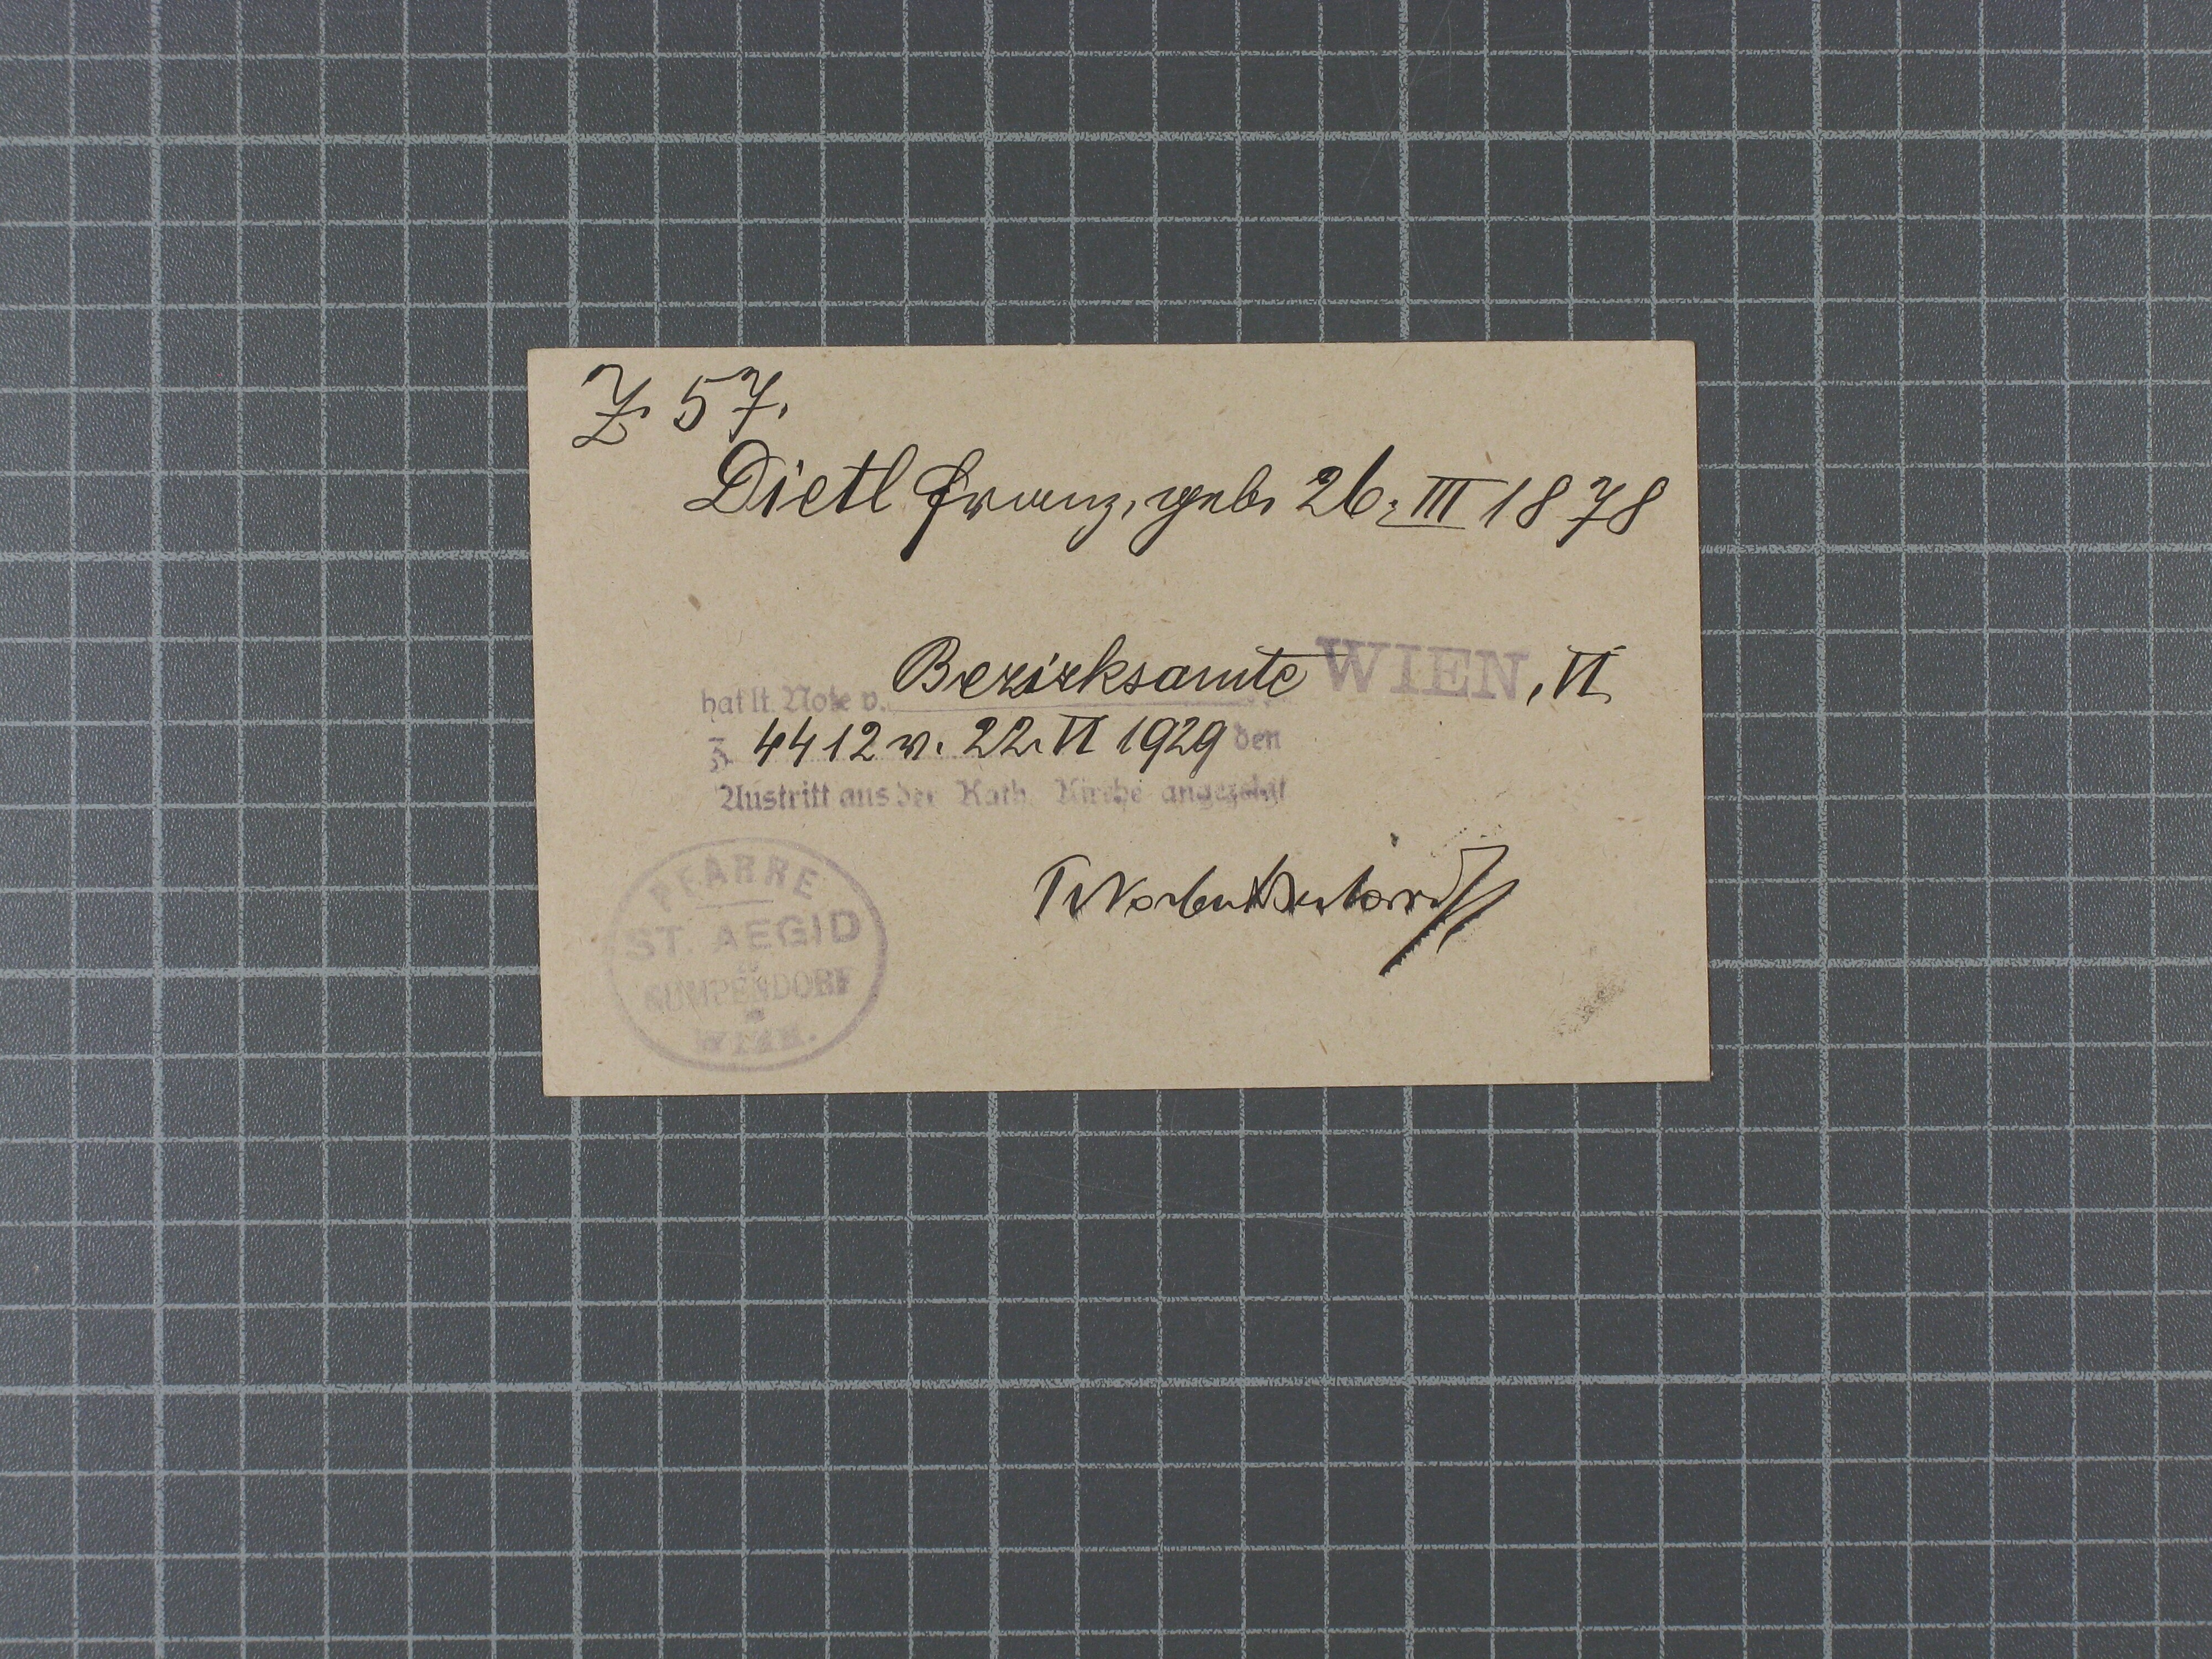 Z. 57.
Dietl Franz, geb. 26. III 1878
hat lt. Note v. Bezirksamte WIEN, VI
Z. 4412 v. 22. VI 1929 den
Austritt aus der Kath. Kirche angezeigt
PFARRE
ST. AEGID
GUMPENDORF
WIEN.